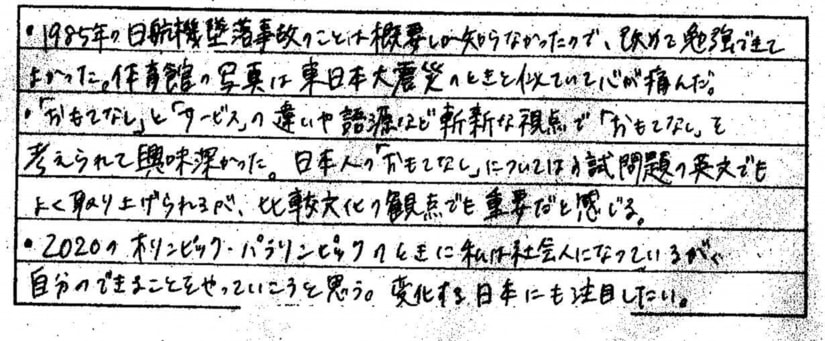 ・1985年の日航機墜落事故のことは概要しか知らなかったので、改めて勉強できて
よかった。体育館の写真は東日本大震災のときと似ていて心が痛んだ。
・「おもてなし」と「サービス」の違いや語源など斬新な視点で「おもてなし」を
考えられて興味深かった。日本人の「おもてなし」については入試問題の英文でも
よく取り上げられるが、比較文化の観点でも重要だと感じる。
・2020のオリンピック・パラリンピックのときに私は社会人になっているが、
自分のできることをやっていこうと思う。変化する日本にも注目したい。